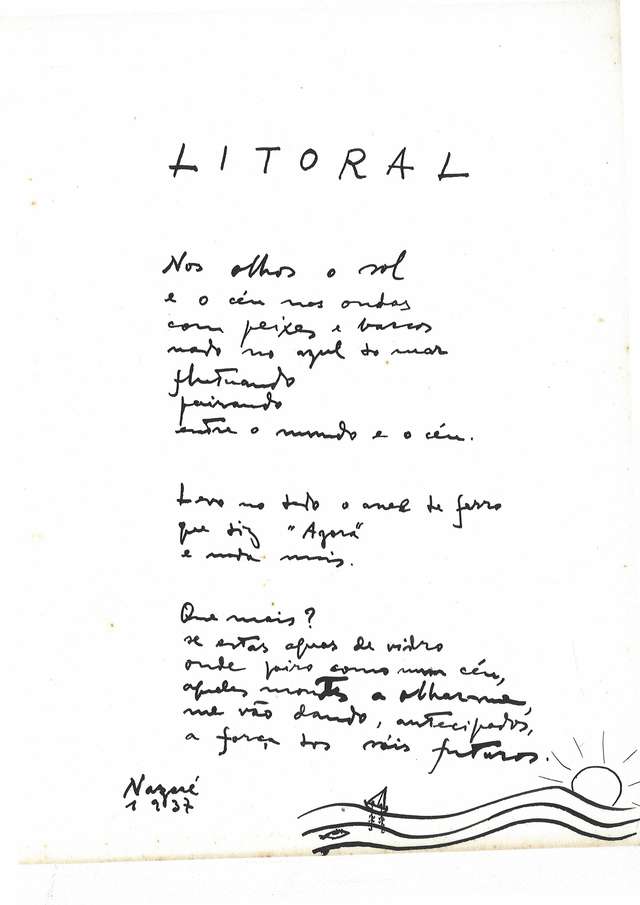 LITORAL
Nos olhos o sol
e o céu nas ondas
com peixes e barcos
nado no azul do mar
flutuando
pairando
entre o mundo e o céu.
Levo no dedo o anel de ferro
que diz "Agora"
e nada mais.
Que mais?
se estas aguas de vidro
onde pairo como num céu,
aqueles montes a olhar-me,
me vão dando, antecipados,
a força dos sóis futuros.
Nazaré
1937